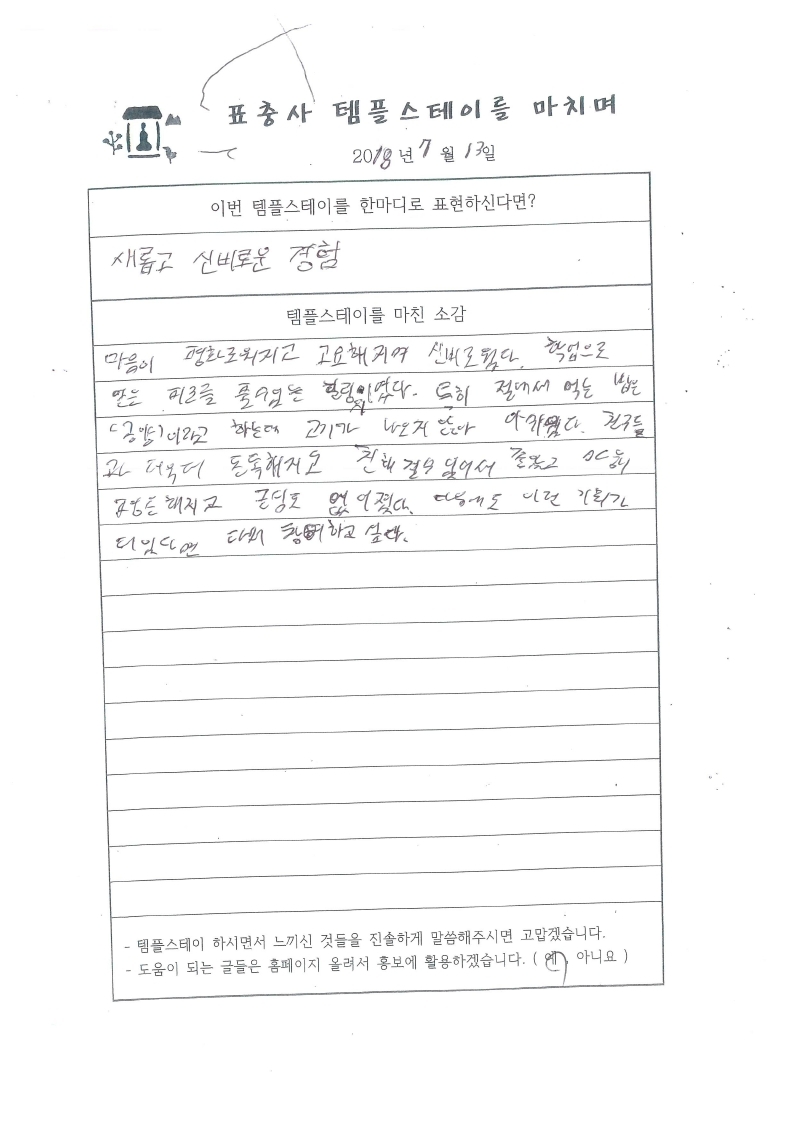 표충사 템플스테이를 마치며
2018년 7월 13일
이번 템플스테이를 한마디로 표현하신다면?
새롭고 신비로운 경험
템플스테이를 마친 소감
마음이 평화로워지고 고요해지며 신비로웠다. 학업으로
받은 피로를 풀수있는 힐링이었다. 특히 절에서 먹는 밥은
(공양)이라고 하는데 고기가 나오지 않아 아쉬웠다. 친구들
과 더욱더 돈독해지고 친해질수 있어서 좋았고
없어졌다. 다음에도 이런 기회가
더있다면 다시 참여하고 싶다.
- 템플스테이 하시면서 느끼신 것들을 진솔하게 말씀해주시면 고맙겠습니다.
- 도움이 되는 글들은 홈페이지 올려서 홍보에 활용하겠습니다. ( 예 , 아니요 )